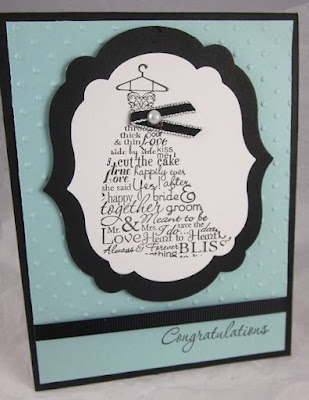 through
thick
& thin Love
side by side kiss
cut the cake
true happily ever
Love
she said Yes! after
happy bride &
together groom
& Meant to be
Mr. & Mrs. I do... save the
Love Heart to Heart
Always & Forever BLISS
Congratulations